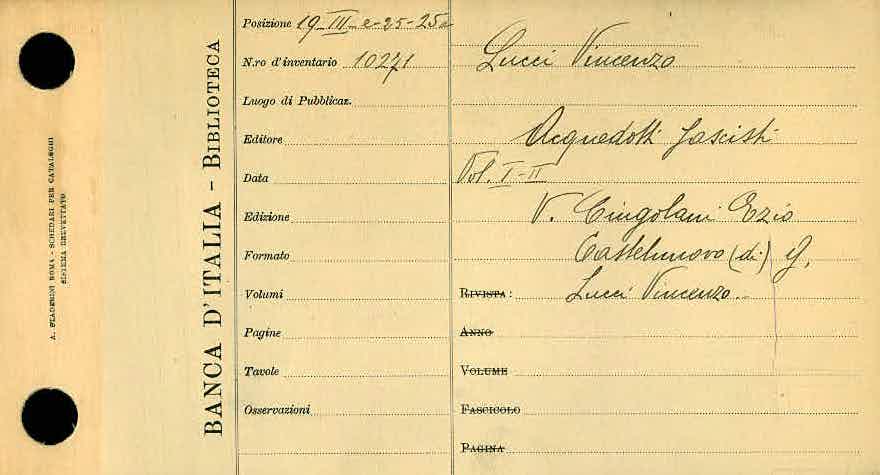 A. STADERINI ROMA - SCHEDARI PER CATALOGHI
SISTEMA BREVETTATO
BANCA D'ITALIA - BIBLIOTECA
Posizione 19-III-e-25-25a
N.ro d'inventario 10271
Luogo di Pubblicaz.
Editore
Data
Edizione
Formato
Volumi
Pagine
Tavole
Osservazioni
Lucci Vincenzo
Acquedotti fascisti
Vol. I-II
V. Cingolani Ezio
Castelnuovo (di) G.
RIVISTA: Lucci Vincenzo
ANNO
VOLUME
FASCICOLO
PAGINA